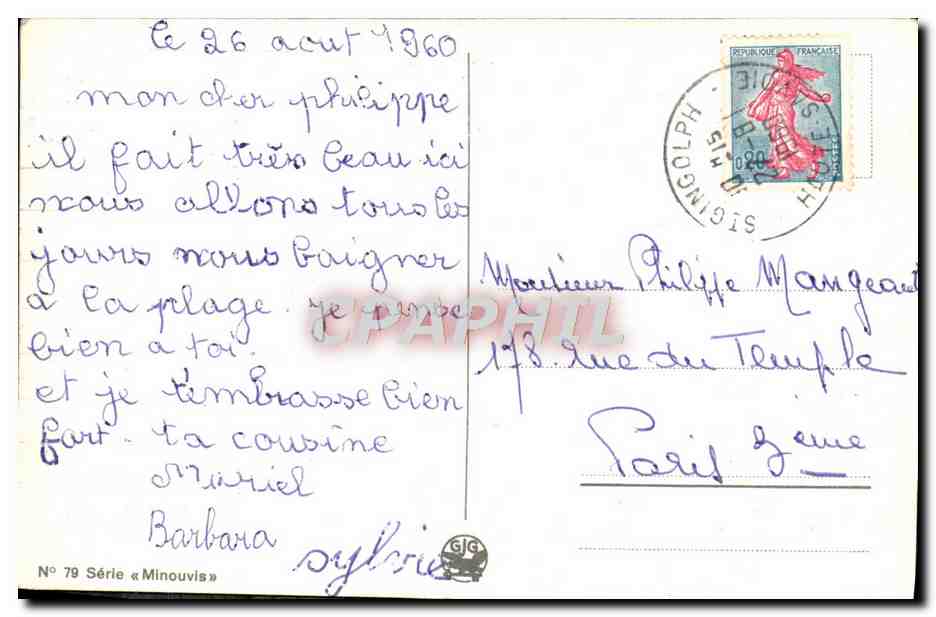 le 26 aout 1960
mon cher philippe
il fait très beau ici
nous allons tous les
jours nous baigner
a la plage. je pense
bien a toi.
et je t'embrasse bien
fort. ta cousine
Muriel
Barbara
sylvie
N° 79 Série « Minouvis »
GJG
CPAPHIL
REPUBLIQUE FRANÇAISE
0,20
POSTES
ST GINGOLPH
Monsieur Philippe Mangeant
178. rue du Temple
Paris 3eme